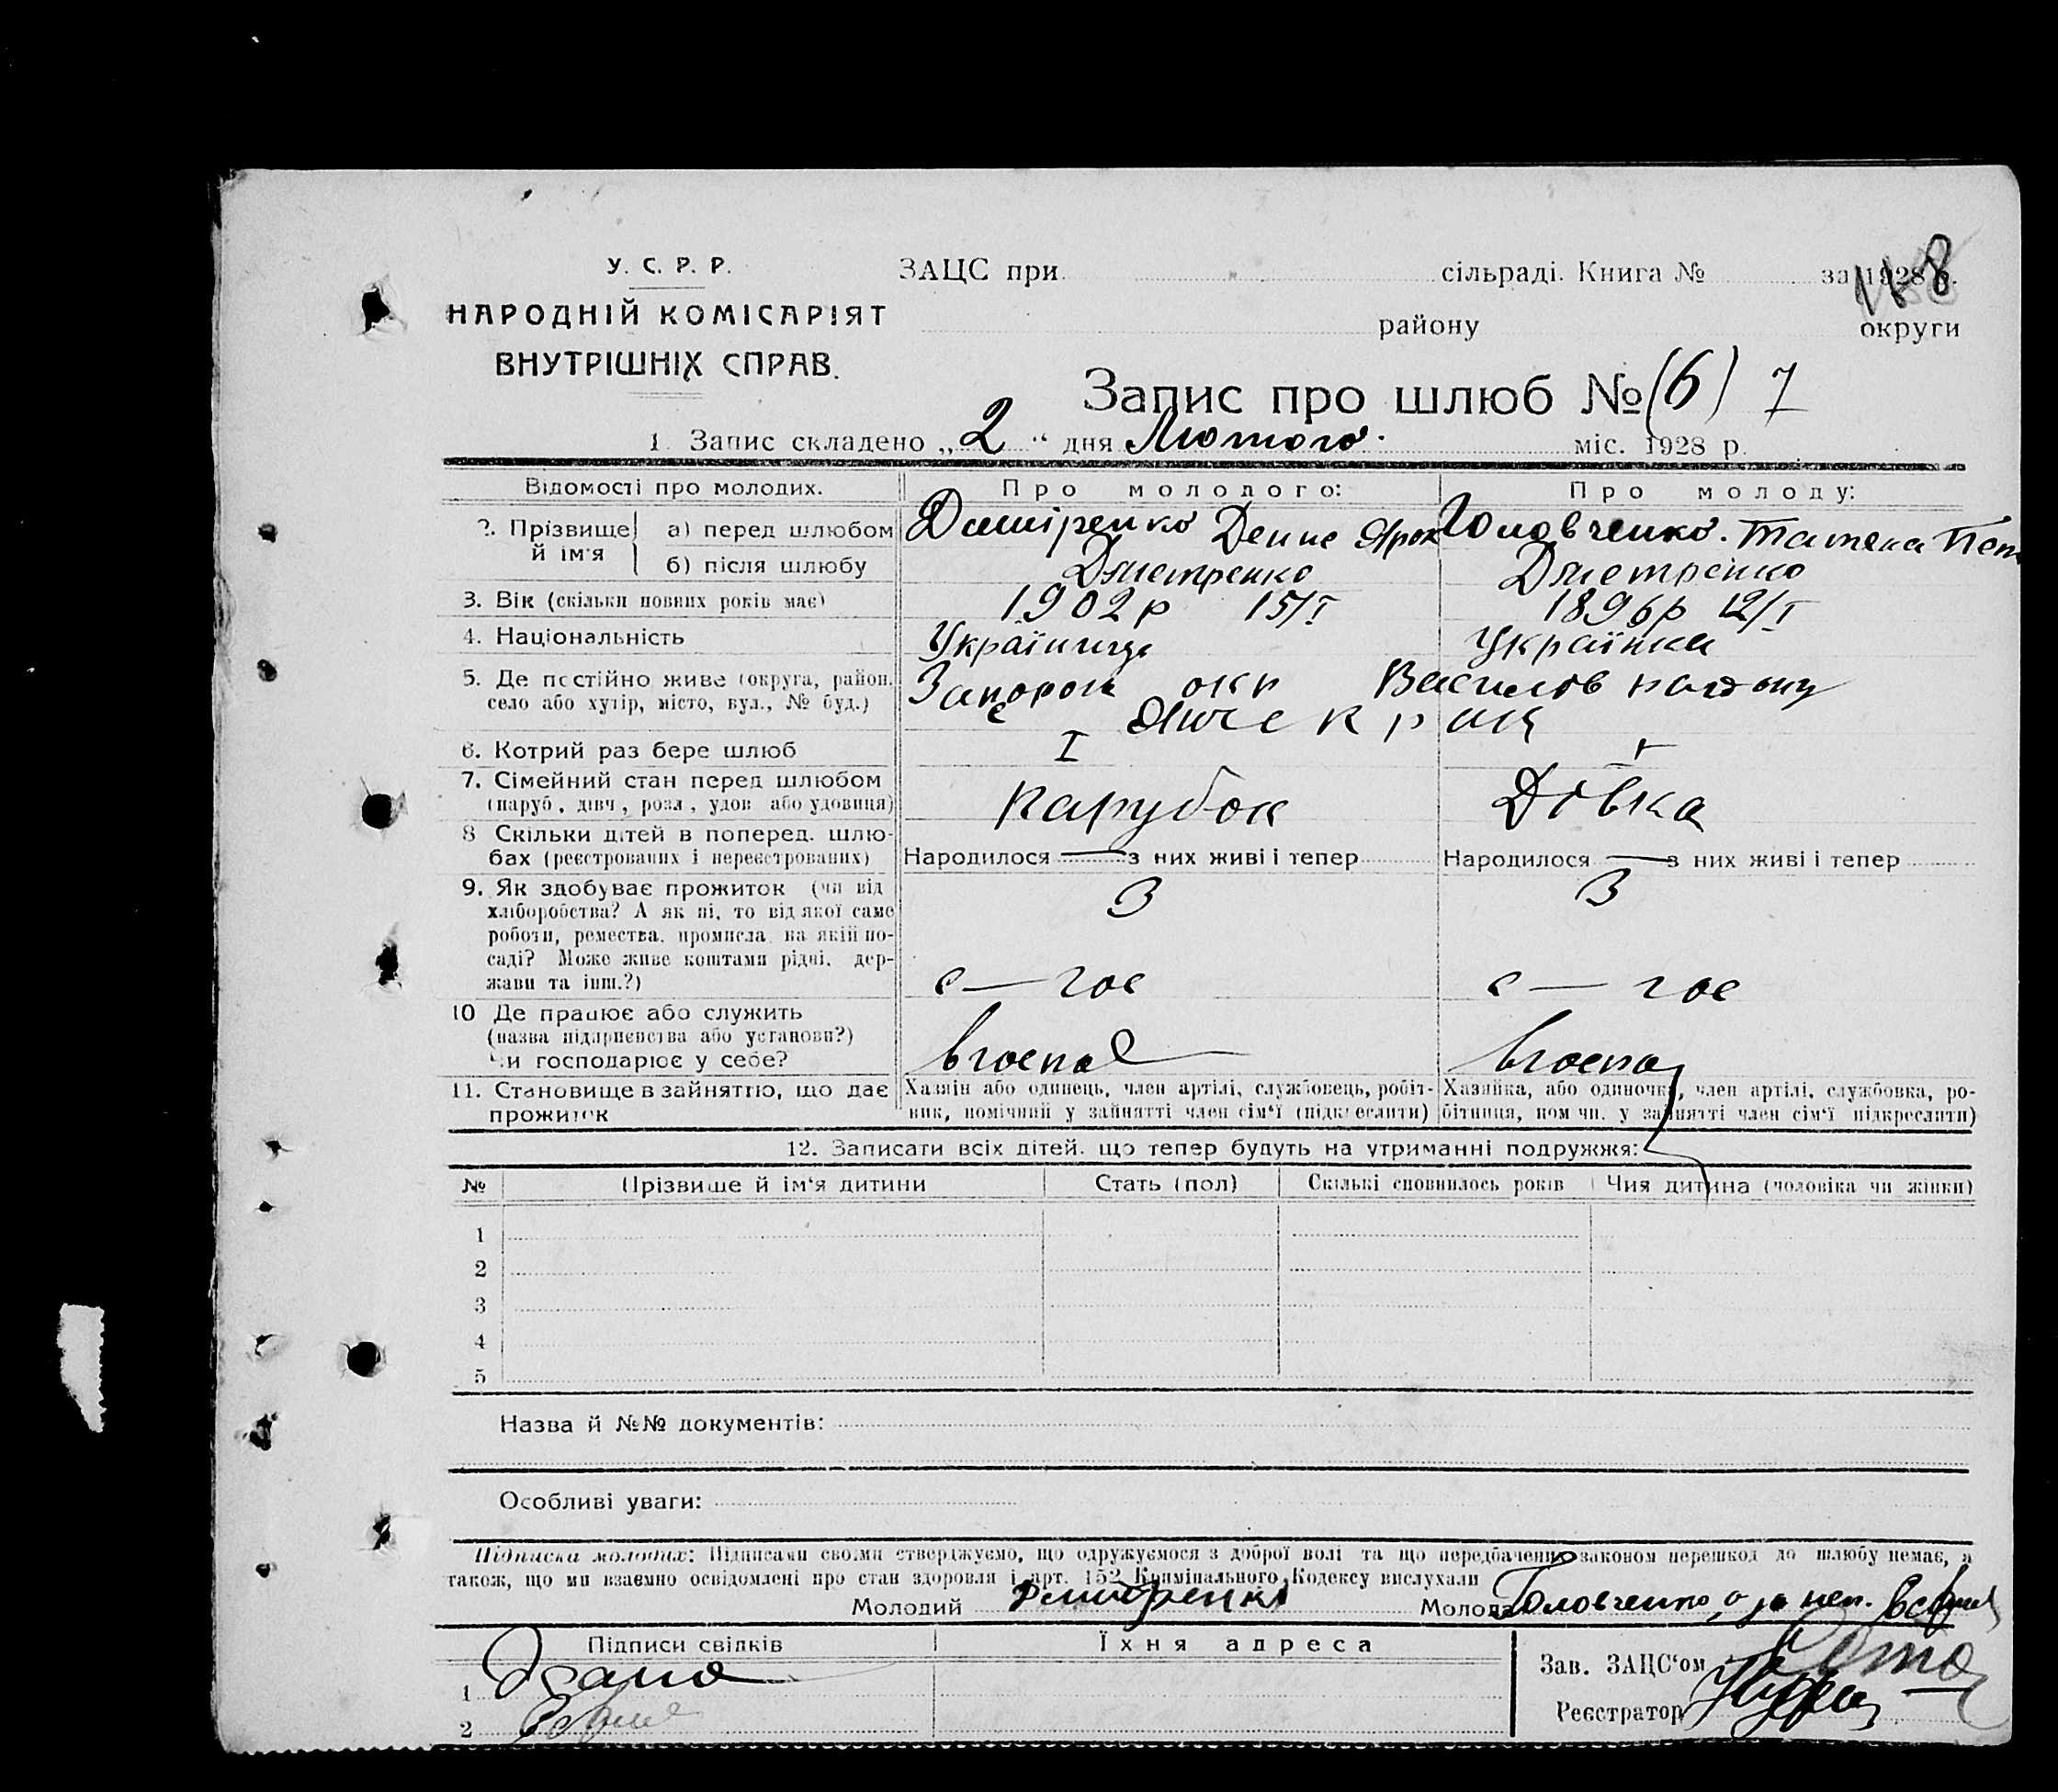 У. С. Р. Р.
НАРОДНІЙ КОМІСАРІЯТ
ВНУТРІШНІХ СПРАВ.
ЗАЦС при сільраді. Книга № за 1928 р.
району округи
Запис про шлюб № (6) 7
1. Запис складено „2“ дня Лютого міс. 1928 р.
Відомості про молодих. Про молодого: Про молоду:
2. Прізвище й ім'я
а) перед шлюбом Головченко. Татяна
б) після шлюбу Дметренко Дметренко
3. Вік (скільки повних років має) 1902р 15/I 1896р 12/I
4. Національність Українка
5. Де постійно живе (округа, район, село або хутір, місто, вул., № буд.) окр
6. Котрий раз бере шлюб I
7. Сімейний стан перед шлюбом (паруб., дівч., розл., удов. або удовиця) парубок Дівка
8 Скільки дітей в поперед. шлюбах (реєстрованих і нереєстрованих) Народилося — з них живі і тепер Народилося — з них живі і тепер
9. Як здобуває прожиток (чи від
хліборобства? А як ні, то від якої саме
роботи, ремества, промисла, на якій по-
саді? Може живе коштами рідні, дер-
жави та інш.?)
З З
с — гос с — гос
10 Де працює або служить
(назва підприємства або установи?)
Чи господарює у себе?
11. Становище в зайняттю, що дає прожиток
Хазяїн або одинець, член артілі, службовець, робіт-
ник, помічний у зайнятті член сім'ї (підкреслити)
Хазяйка, або одиночка, член артілі, службовка, ро-
бітниця, помічн. у зайнятті член сім'ї підкреслити)
12. Записати всіх дітей, що тепер будуть на утриманні подружжя:
№ Прізвище й ім'я дитини Стать (пол) Скількі сповнилось років Чия дитина (чоловіка чи жінки)
1
2
3
4
5
Назва й №№ документів:
Особливі уваги:
Підписка молодих: Підписами своїми стверджуємо, що одружуємося з доброї волі та що передбачених законом перешкод до шлюбу немає, а
також, що ми взаємно освідомлені про стан здоровля і арт. 152 Кримінального Кодексу вислухали
Молодий Молода Головченко
Підписи свідків Їхня адреса
Зав. ЗАЦС'ом
1
Реєстратор
2